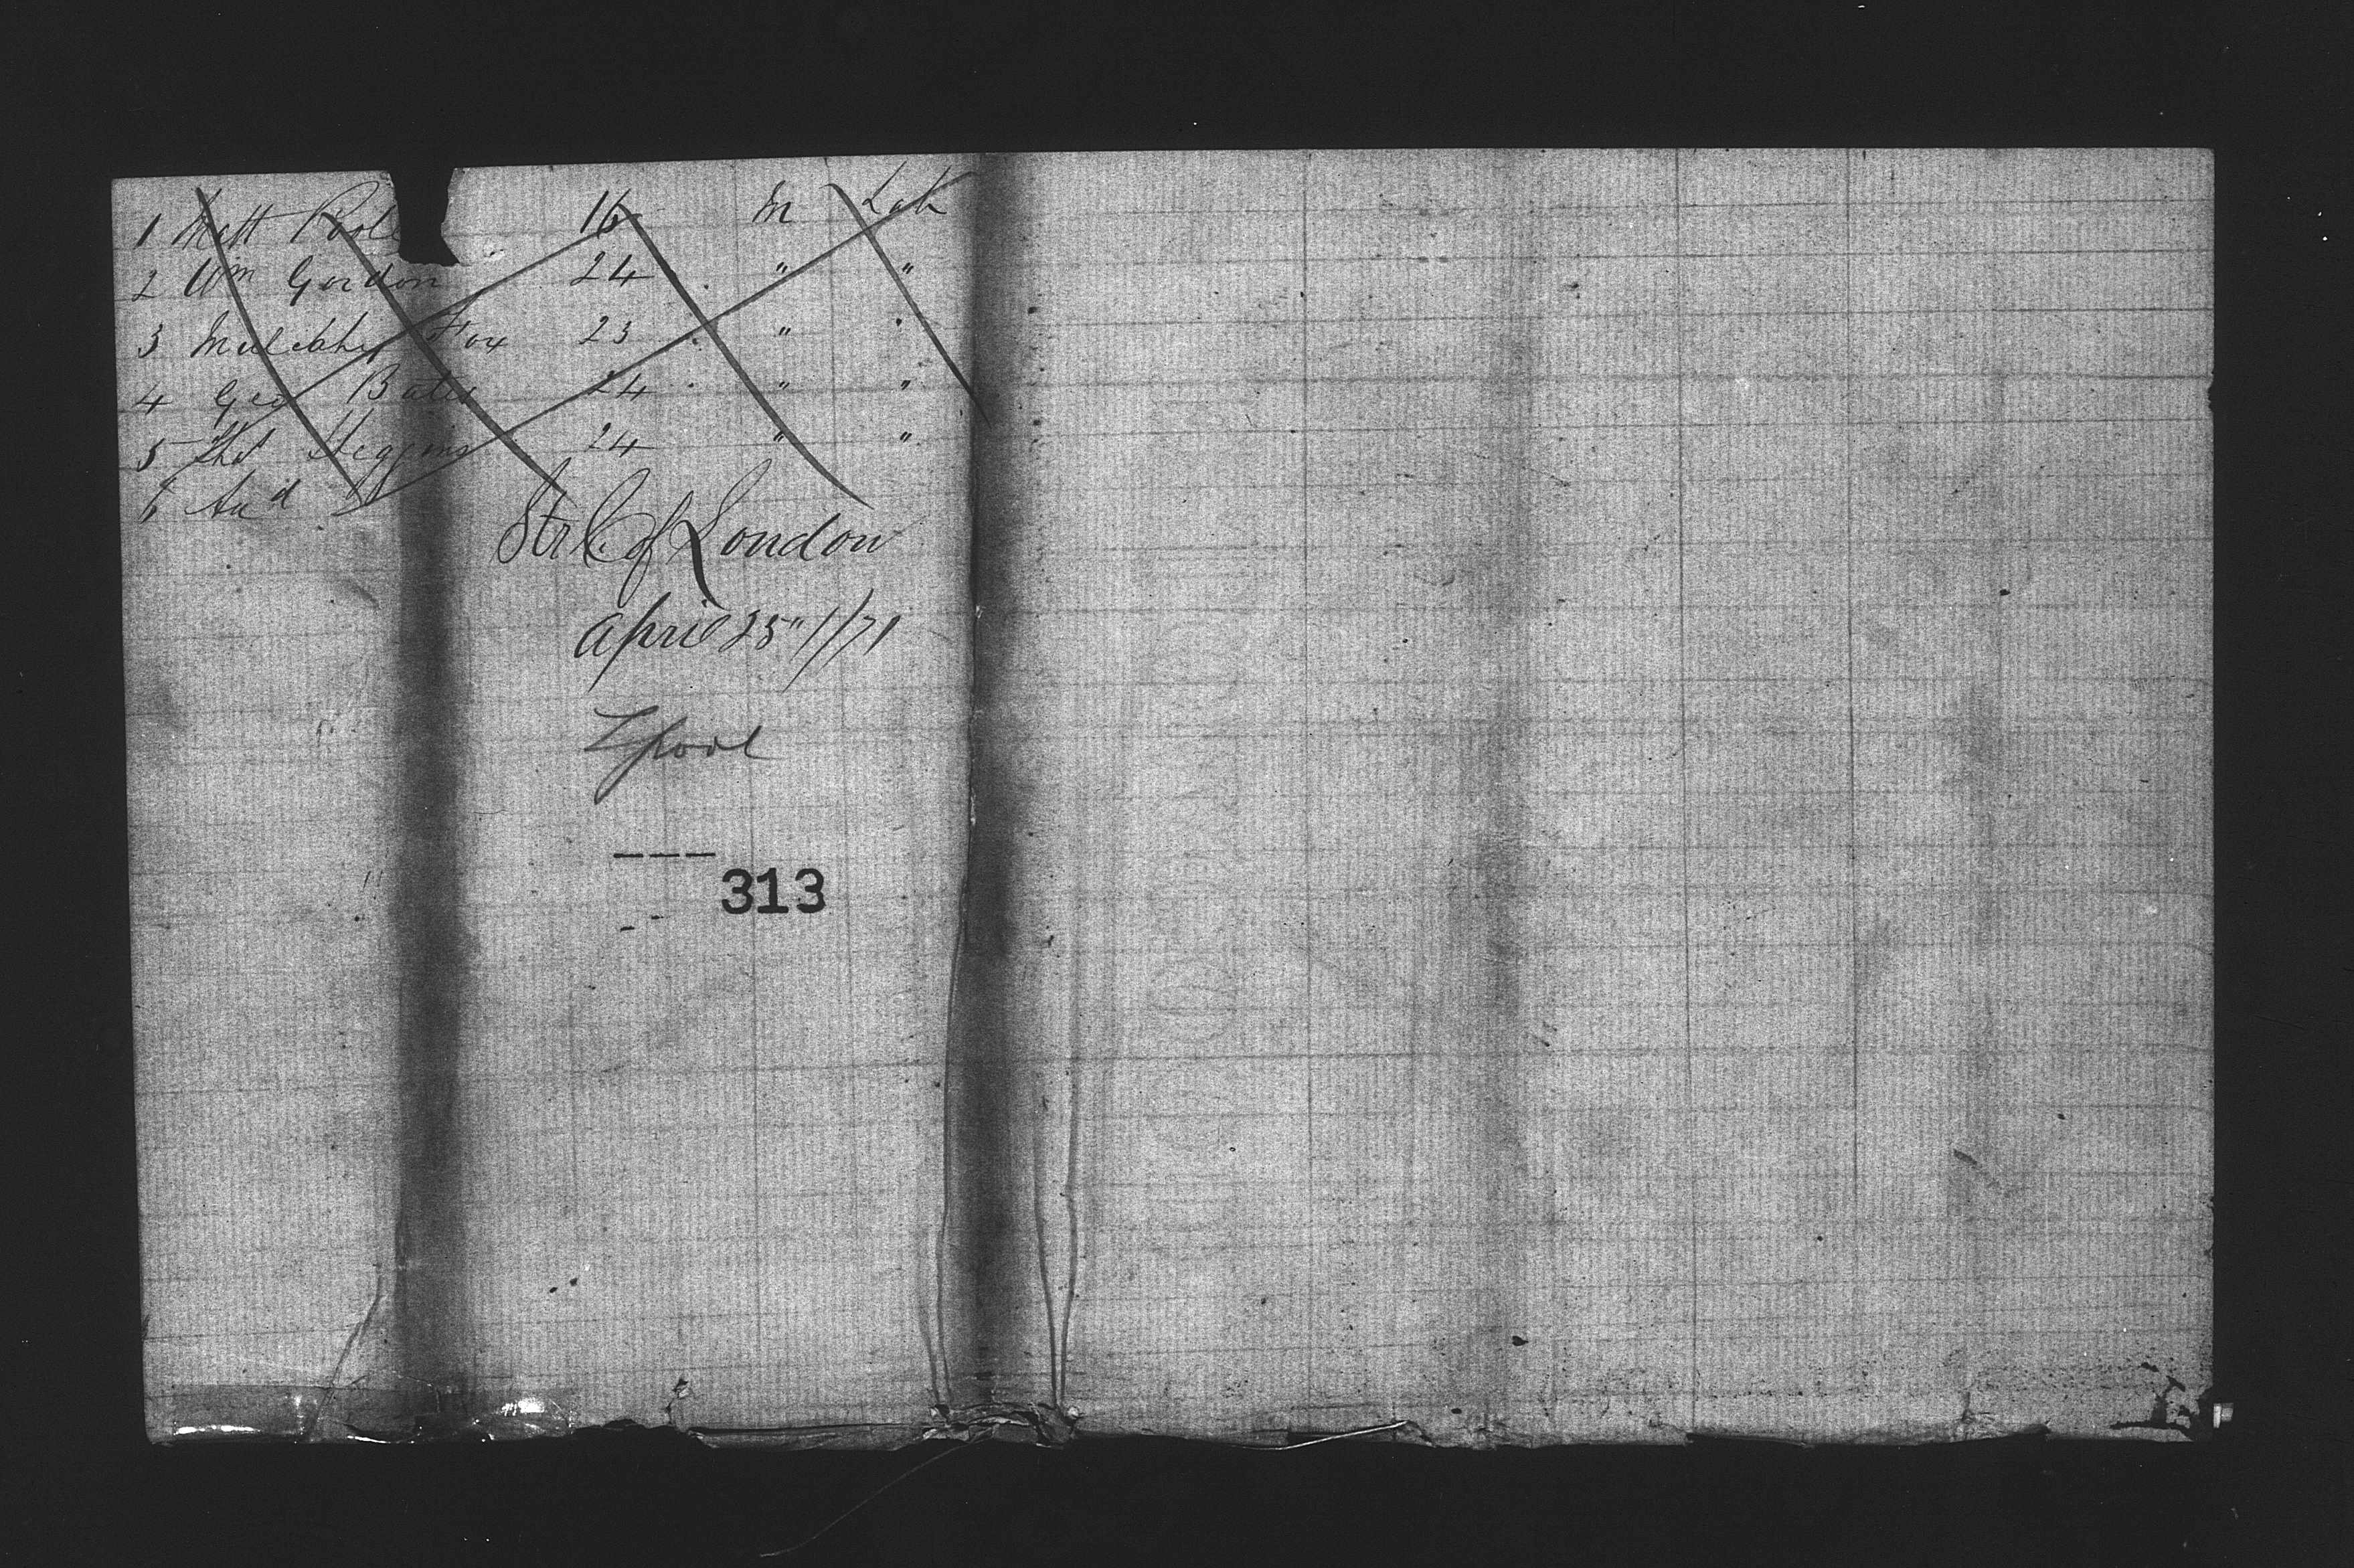 1 Matt Poole 16 M Lab
2 Wm Gordon 24 " "
3 Malichy Fox 23 " "
4 Geo Bates 24 " "
5 Thos Higgins 24 " "
6 And
Str C of London
April 25" 1/71
Lpool
313